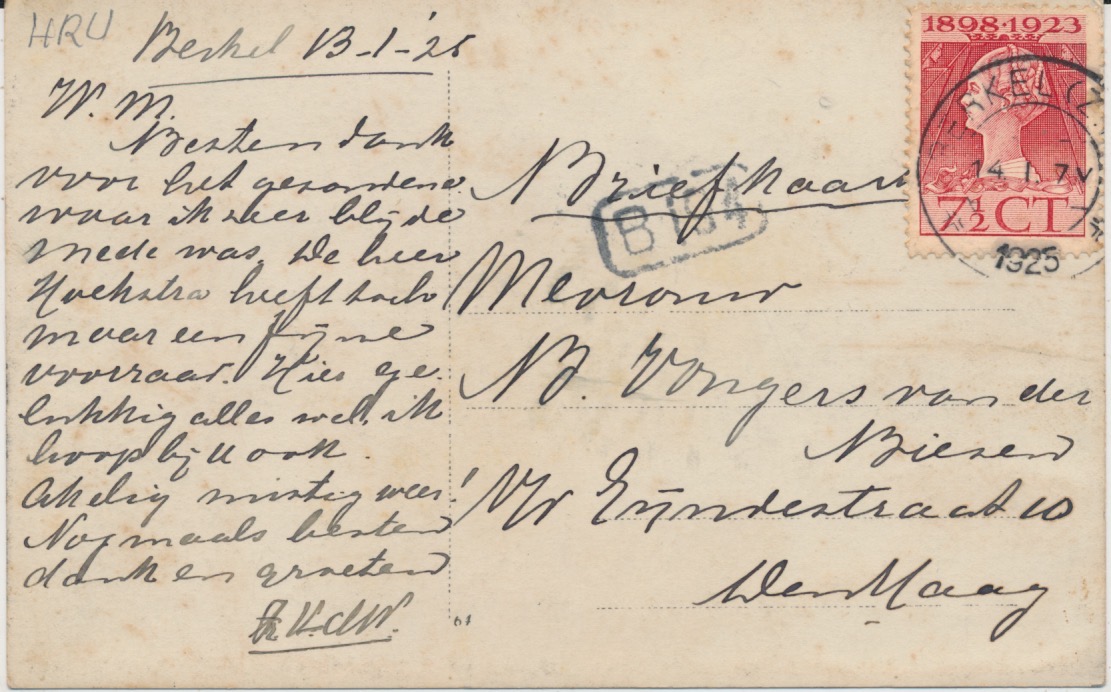 HRU
Berkel 13-1-'25
W. M.
Besten dank
voor het gezondene
waar ik zeer blijde
mede was. De heer
Hoekstra heeft toch
maar een fijne
voorraad. Hier ge-
lukkig alles wel, ik
hoop bij U ook.
Akelig mistig weer!
Nogmaals besten
dank en groeten
1898·1923
BERKEL (Z.
14 1. 7V
1925
7½ CT
B 154
Briefkaart
Mevrouw
B. Vongers van der
Biesen
Eijndestraat 10
Den Haag
61